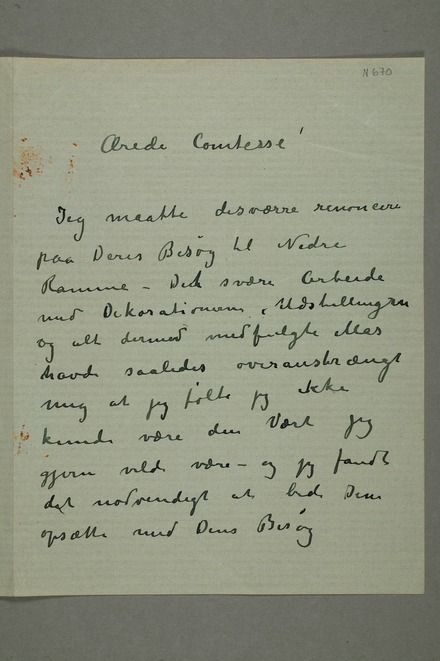 N 670
Ærede Comtesse!
Jeg maatte desværre renoncere
paa Deres Besøg til Nedre
Ramme – Det svære Arbeide
med Dekorationerne, Udstillingen
og alt dermed medfulgte Mas
havde saaledes overanstrængt
mig at jeg følte jeg ikke
kunde være den Vært jeg
gjerne vilde være – og jeg fandt
det nødvendigt at bede Dem
opsætte med Deres Besøg